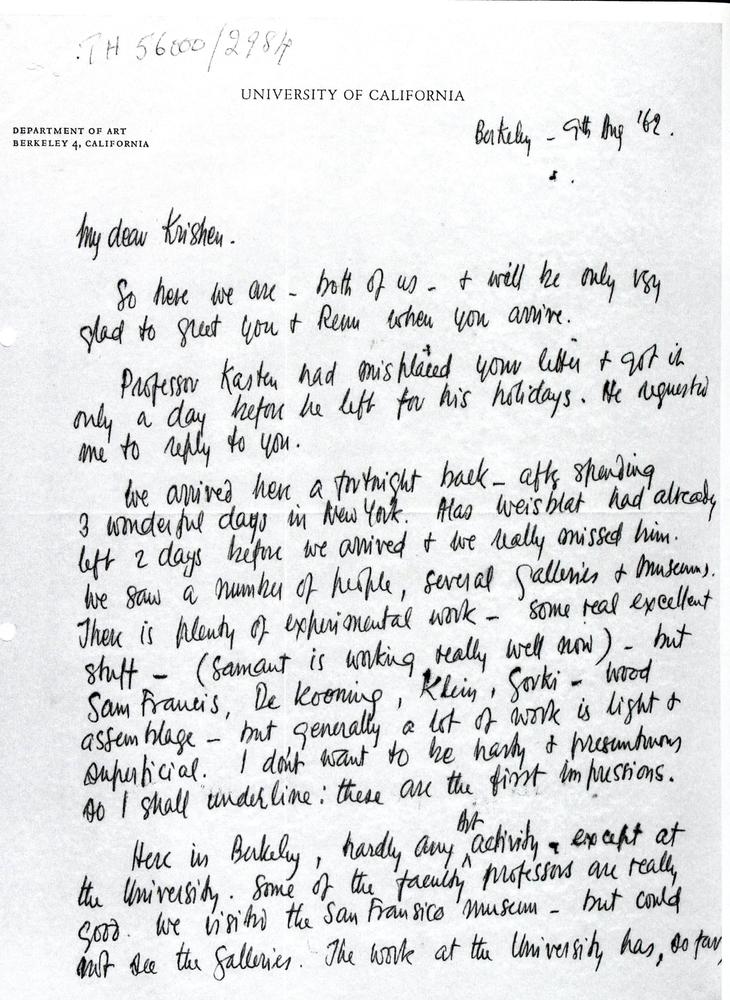 TH 56000/2984
UNIVERSITY OF CALIFORNIA
DEPARTMENT OF ART
BERKELEY 4, CALIFORNIA
Berkeley - 9th Aug '62.
My dear Krishen.
So here we are - both of us - & will be only very
glad to greet you & Renu when you arrive.
Professor Kasten had misplaced your letter & got it
only a day before he left for his holidays. He requested
me to reply to you.
We arrived here a fortnight back - after spending
3 wonderful days in New York. Alas Weisblat had already
left 2 days before we arrived & we really missed him.
We saw a number of people, several galleries & museums.
There is plenty of experimental work - some real excellent
stuff - (Samant is working really well now) - but
Sam Francis, De Kooning, Klein, Gorki - wood
assemblage - but generally a lot of work is light &
superficial. I don't want to be hasty & presumtuous
so I shall underline: these are the first impressions.
Here in Berkeley, hardly any Art activity - except at
the University. Some of the faculty professors are really
good. We visited the San Fransico museum - but could
not see the galleries. The work at the University has, so far,